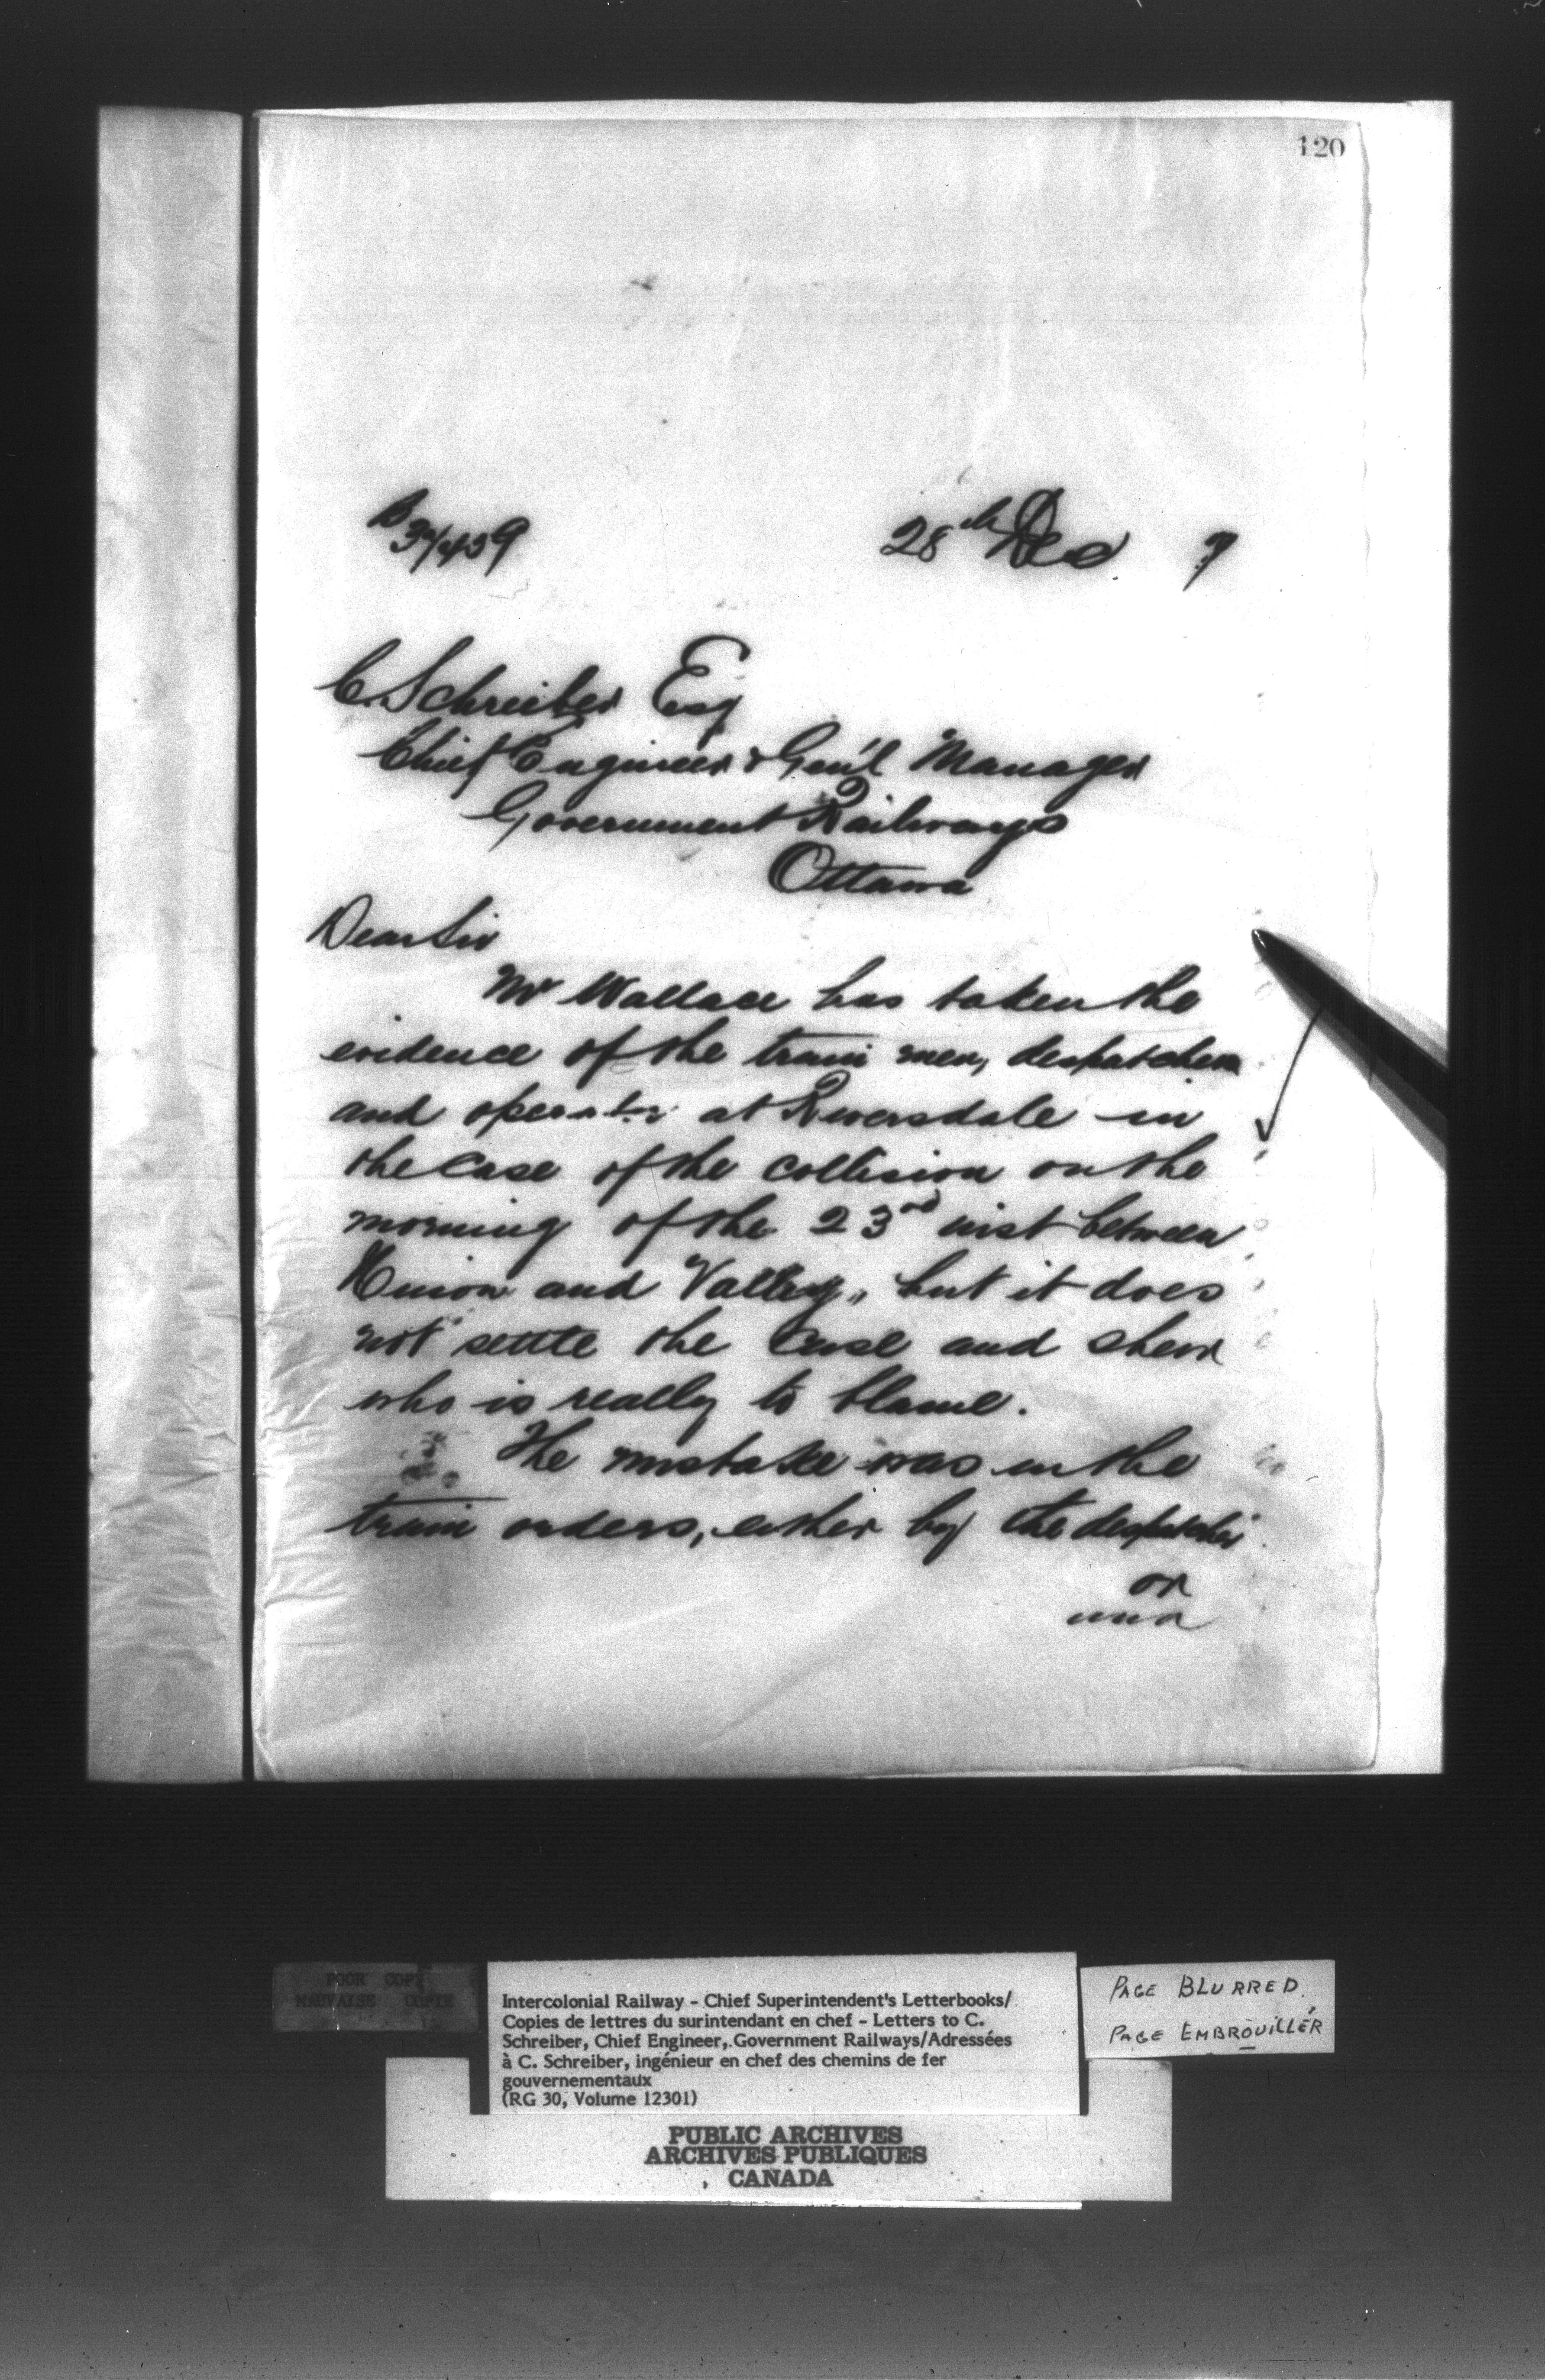 120
B 37459
28th Dec 7
C Schreiber Esq
Chief Engineer & Gen'l Manager
Government Railways
Ottawa
Dear Sir
Mr Wallace has taken the
evidence of the train men, despatchers
and operator at Riversdale in
the case of the collision on the
morning of the 23rd inst between
Union and Valley, but it does
not settle the case and shew
who is really to blame.
The mistake was in the
train orders, either by the despatcher
or
POOR COPY
MAUVAISE COPIE
Intercolonial Railway - Chief Superintendent's Letterbooks/
Copies de lettres du surintendant en chef - Letters to C.
Schreiber, Chief Engineer, Government Railways/Adressées
à C. Schreiber, ingénieur en chef des chemins de fer
gouvernementaux
(RG 30, Volume 12301)
PAGE BLURRED.
PAGE EMBROUILLÉR
PUBLIC ARCHIVES
ARCHIVES PUBLIQUES
CANADA